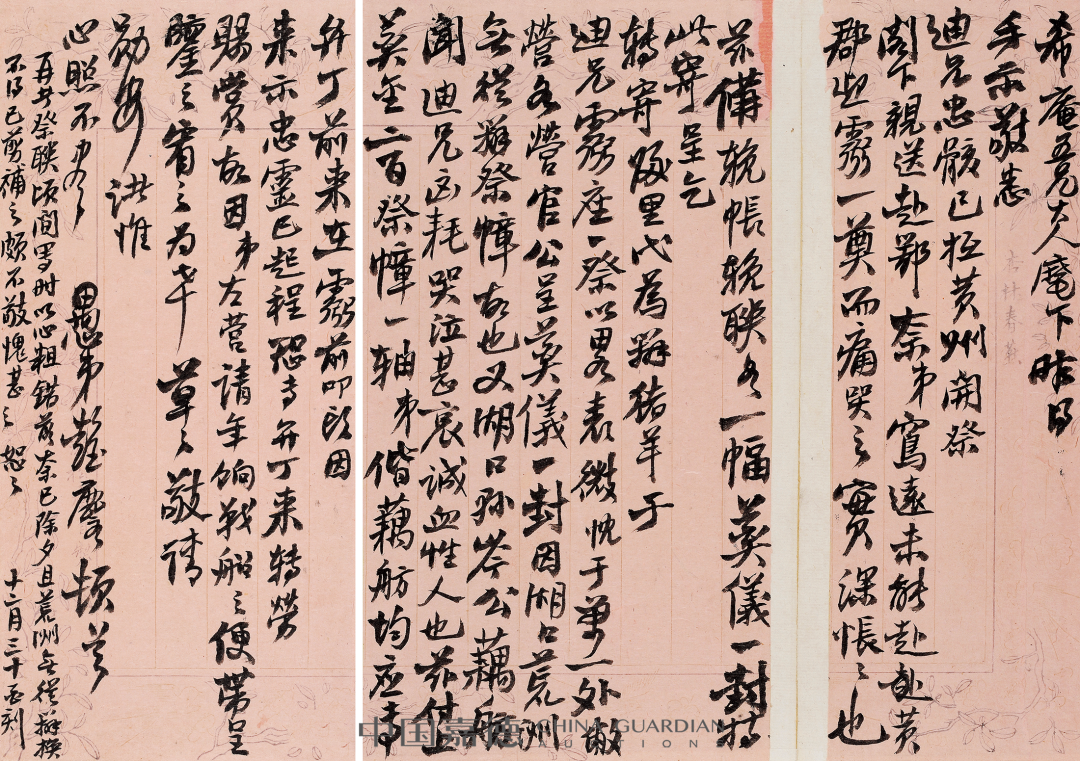 希庵五兄大人麾下昨日
手示敬悉
迪兄忠骸已抵黄州開祭
閣下親送赴鄂奈弟寫遠未能赴赴黄
郡迎靈一奠而痛哭之實深悵之也
茲備輓幛輓聯各一幅奠儀一封特
此寄呈乞
轉寄 里代為辦猪羊于
迪兄靈座一祭以畧表微忱于萬一外敝
營各營官公呈奠儀一封因湖口荒洲
無從辦祭幛故也又湖口孫岑公藕舫
聞迪兄凶耗哭泣甚哀誠血性人也茲付上
奠金二百祭幛一軸弟偕藕舫均應専
弁丁前来在靈前叩以因
来示忠靈已起程恐専弁丁来轉勞
賜賞故因弟左營請年餉戰船之便帶呈
鑒之宥之為幸草之敬請
勛安諸惟
心照不宣
愚弟 麐 頓首
再者祭聯頃間男時以心粗錯落奈已除夕且荒洲無從辦換
不得已剪補之頗不敬愧甚之恕之 十二月三十亥刻
中国嘉德 CHINA GUARDIAN
AUCTIONS